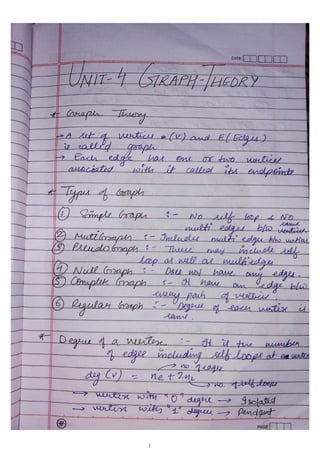 DATE
UNIT-4 GRAPH-THEORY
* Graph Theory
→ A set of vertices (V) and E (Edges)
is called graph
→ Each edge has one or two vertices
associated with it called its endpoints
* Types of Graph
① Simple Graph :- No self loop & NO
multi edges b/w same vertices
② MultiGraphs :- Includes multi edges b/w vertices
③ PseudoGraphs :- There may include self
loop as well as multiedges
④ Null Graph :- Does not have any edges.
⑤ Complete Graph :- It have an edge b/w
every pair of vertices.
⑥ Regular Graph :- Degree of each vertex is
same.
* Degree of a vertex :- It is the number
of edges including self loops at a vertex
no. of edges
deg (V) = ne + 2nl
no. of self loops
→ vertex with "0" degree → Isolated
→ vertex with "1" degree → Pendant
PAGE
1